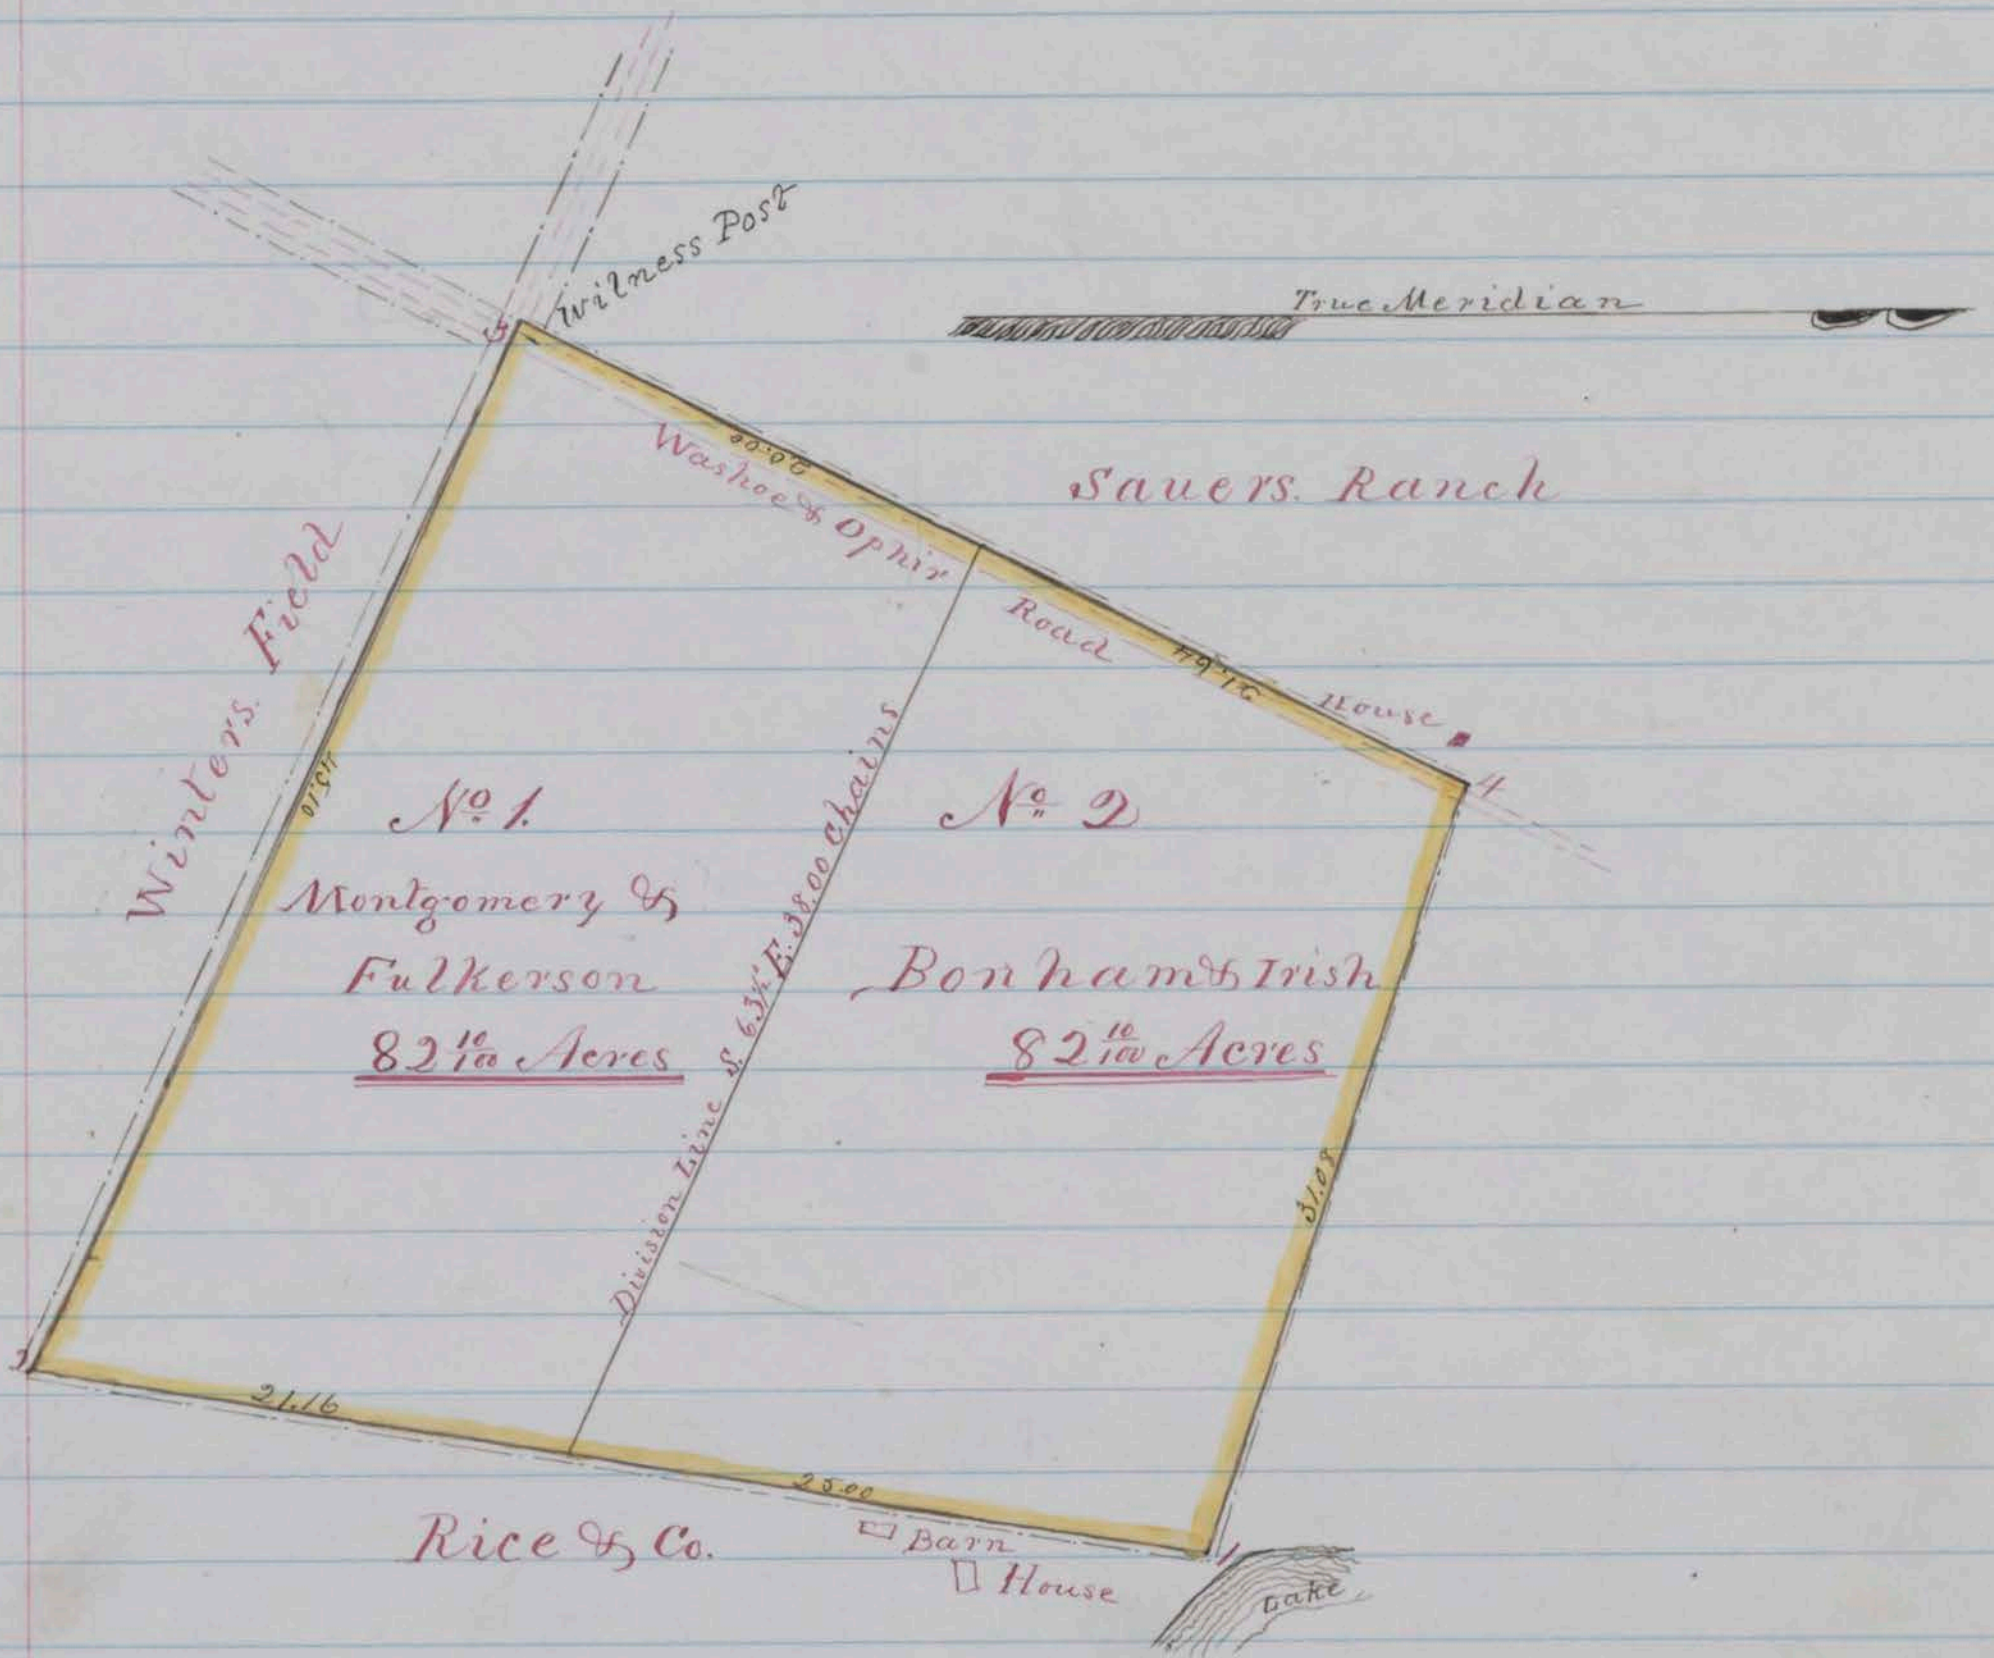 Witness Post
True Meridian
3
20.00
Washoe & Ophir
Road
Sauers. Ranch
21.64
House
4
Winters. Field
45.10
No 1.
Montgomery &
Fulkerson
82 10/100 Acres
Division Line S. 63½° E. 38.00 Chains
No 2
Bonham & Irish
82 10/100 Acres
31.08
21.16
25.00
1
Rice & Co.
Barn
House
Lake